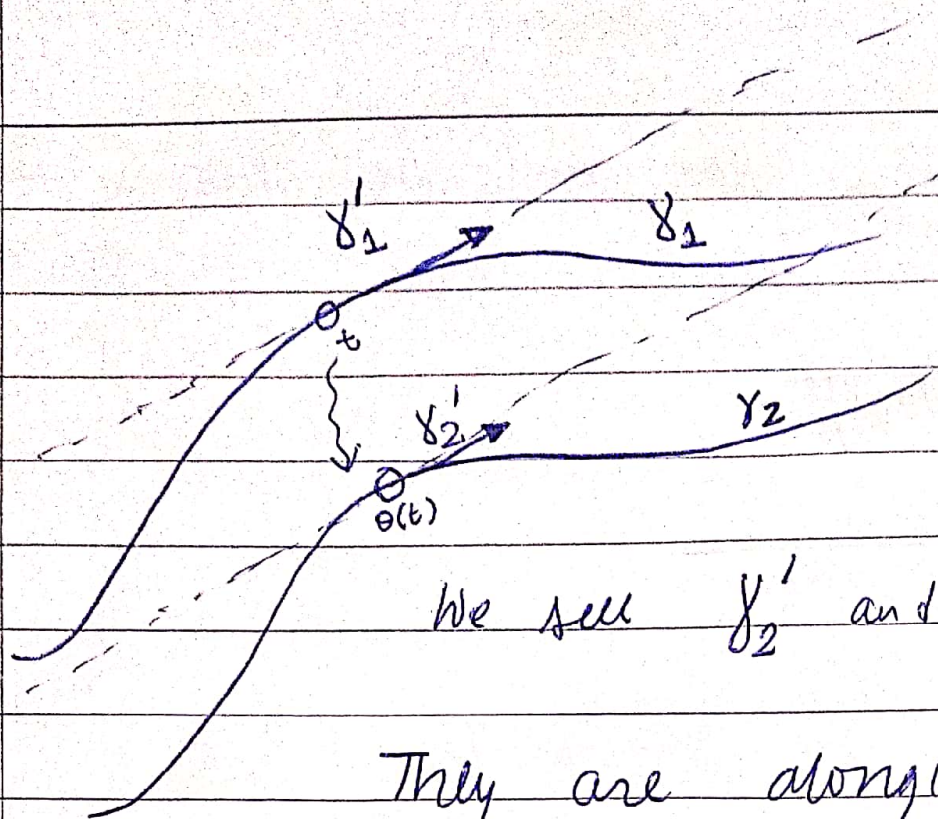 γ'₁ γ₁
t
γ'₂ γ₂
θ(t)
We sell γ'₂ and
They are along